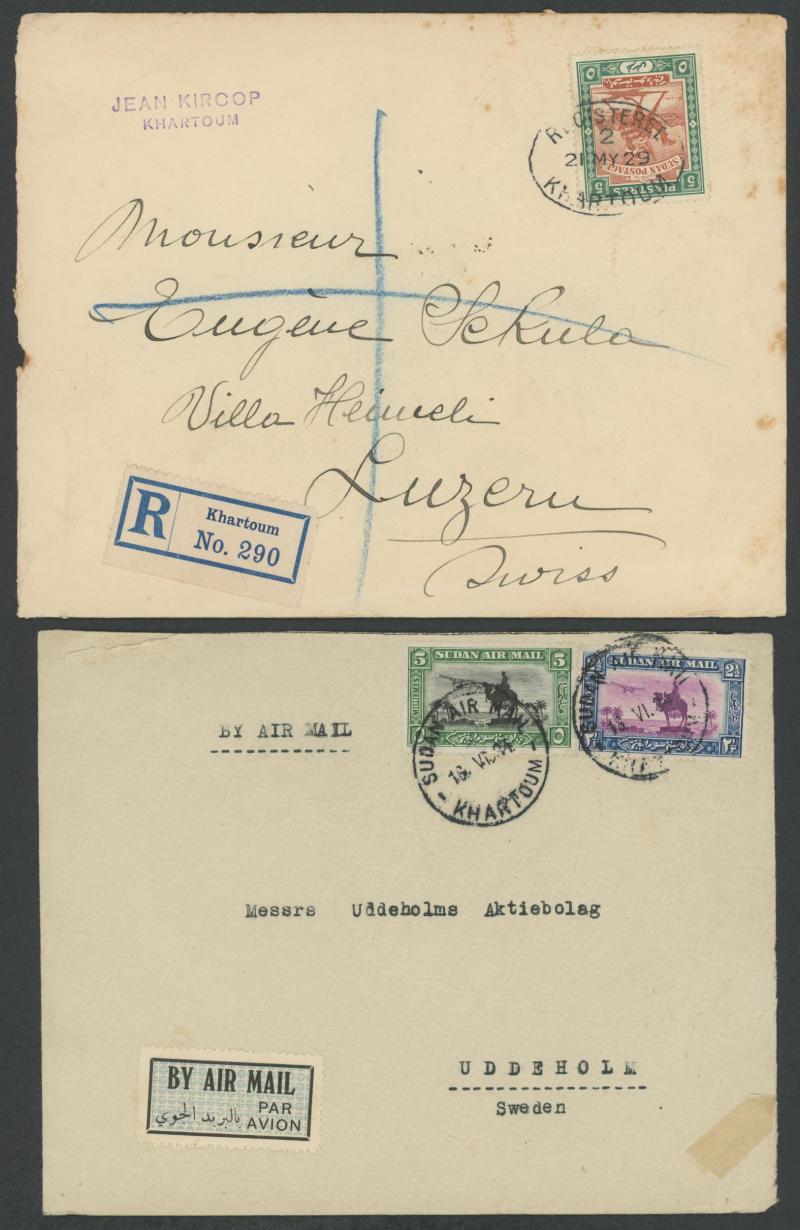 JEAN KIRCOP
KHARTOUM
SUDAN POSTAGE
5 PIASTRES 5
REGISTERED
2
21 MY 29
KHARTOUM
Monsieur
Eugène Sekula
Villa Heimeli
Luzern
Swiss
R Khartoum
No. 290
5 SUDAN AIR MAIL 5
MILLIEMES
SUDAN AIR MAIL 2½
SUDAN AIR MAIL
KHARTOUM
BY AIR MAIL
Messrs Uddeholms Aktiebolag
UDDEHOLM
Sweden
BY AIR MAIL
بالبريد الجوي PAR
AVION